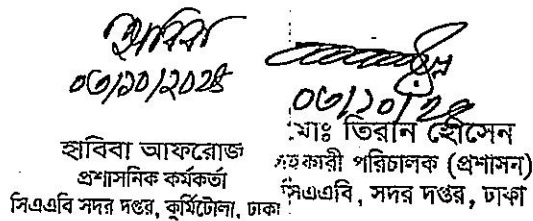 হাবিবা
০৩/১০/২০২৪
হাবিবা আফরোজ
প্রশাসনিক কর্মকর্তা
সিএএবি সদর দপ্তর, কুর্মিটোলা, ঢাকা
০৩/১০/২৪
মোঃ তিরান হোসেন
সহকারী পরিচালক (প্রশাসন)
সিএএবি, সদর দপ্তর, ঢাকা